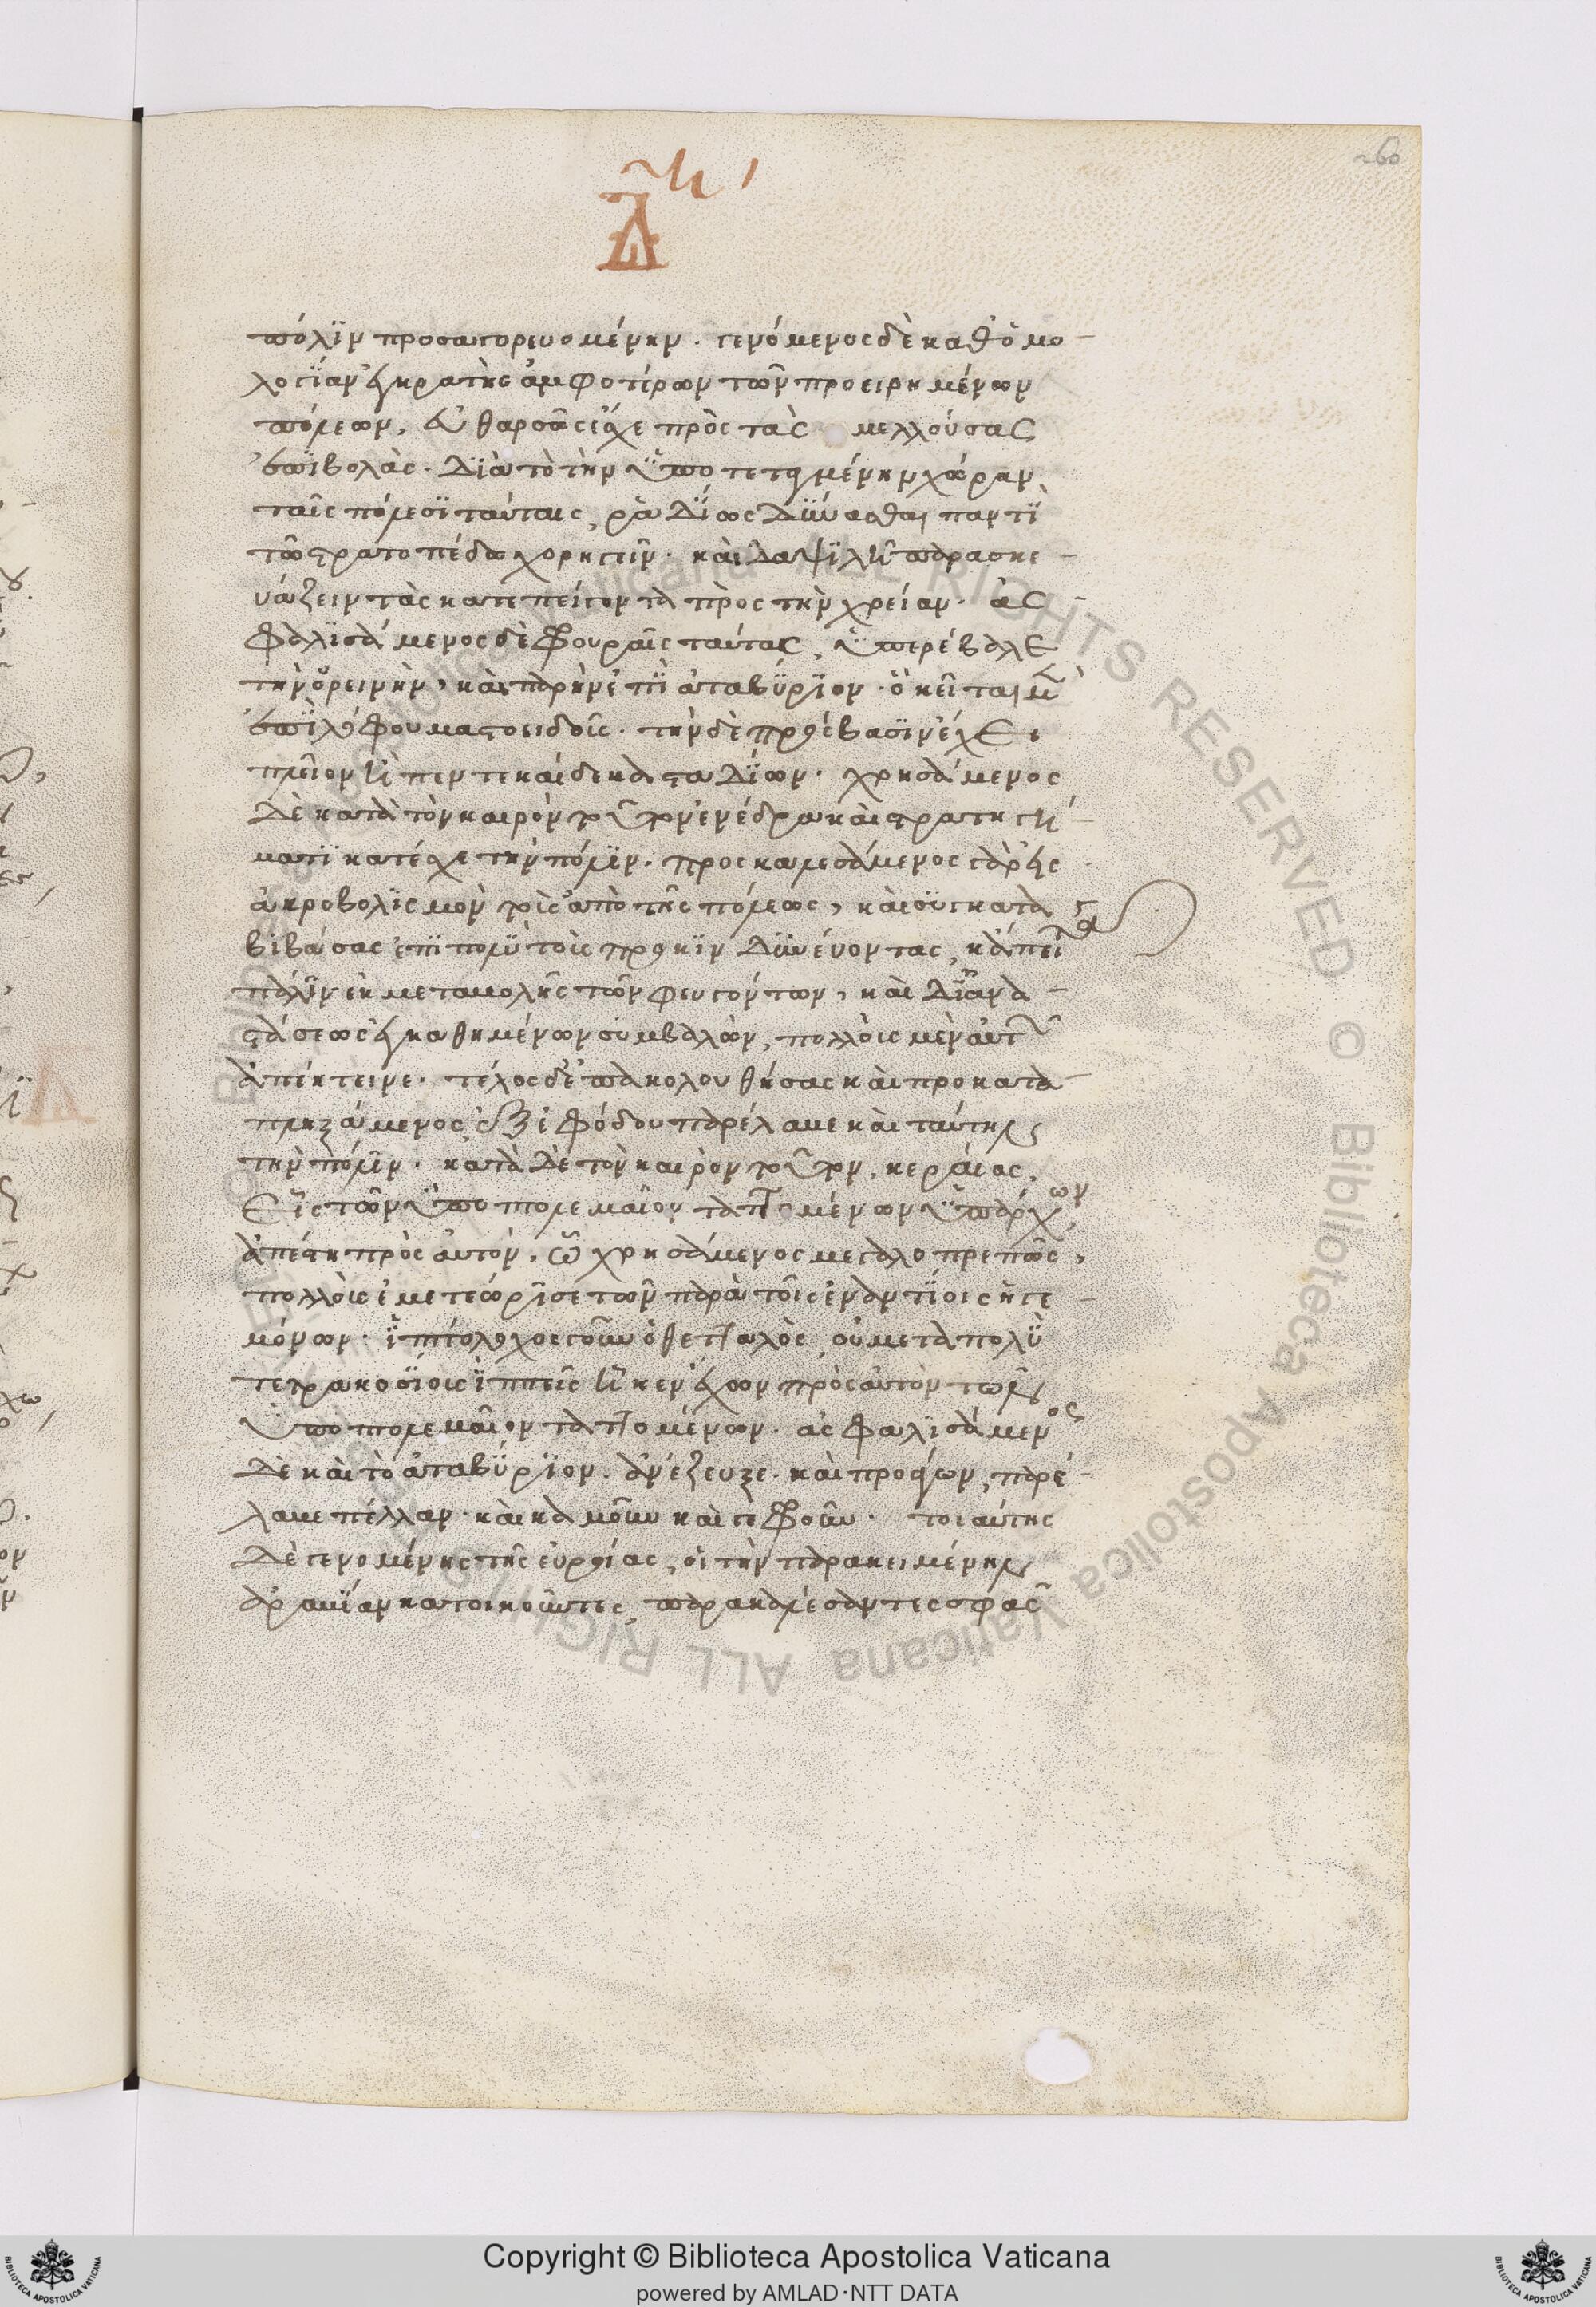 Δ Πολ η
260
πόλϊν προσαγορευομένην. γενόμενος δὲ καθ' ὁμο-
λογΐαν ἐγκρατὴς ἀμφοτέρων τῶν προειρημένων
πόλεων, εὐθαρσῶς εἶχε πρὸς τὰς μελλούσας
ἐπϊβολὰς. δϊὰ τὸ τὴν ὑποτεταγμένην χώραν
ταῖς πόλεσϊ ταύταις, ῥαδΐως δΰνασθαι παντὶ
τῶ στρατοπέδω χορηγεῖν. καὶ δαψϊλῆ παρασκε-
υάζειν τὰς κατεπείγοντα πρὸς τὴν χρείαν. ἀσ-
φαλϊσάμενος δὲ φρουραῖς ταύτας, ὑπερέβαλε
τὴν ὀρεινὴν, καὶ παρῆν ἐπὶ ἀταβΰρϊον. ὃ κεῖται μὲν
ἐπὶ λόφου μαστοειδοῦς. τὴν δὲ πρόσβασϊν ἔχει
πλεῖον ἢ πεντεκαίδεκα σταδΐων. χρησάμενος
δὲ κατὰ τὸν καιρὸν τοῦτον ἐνέδρα καὶ στρατηγή-
ματϊ κατέσχε τὴν πόλιν. προσκαλεσάμενος γὰρ εἰς
ἀκροβολϊσμὸν τοὺς ἀπὸ τῆς πόλεως, καὶ συγκατα
βϊβάσας ἐπὶ πολὺ τοὺς προκϊνδυνεύοντας, κἄπειτα
πάλϊν ἐκ μεταβολῆς τῶν φευγόντων, καὶ δϊανα-
στάσεως ἐγκαθημένων συμβαλὼν, πολλοὺς μὲν αὐτῶν
ἀπέκτεινε. τέλος δ' ἐπακολουθήσας καὶ προκατα-
πληξάμενος, ἐξ ἐφόδου παρέλαβε καὶ ταύτην
τὴν πόλϊν. κατὰ δὲ τὸν καιρὸν τοῦτον, κεραίας,
εἷς τῶν ὑπὸ πτολεμαῖον ταττομένων ὑπάρχων
ἀπέστη πρὸς αὐτόν. ὧ χρησάμενος μεγαλοπρεπῶς,
πολλοὺς ἐμετεώρϊσε τῶν παρὰ τοῖς ἐναντΐοις ἡγε-
μόνων. ἱππόλοχος γοῦν ὁ θετταλὸς, οὐ μετὰ πολὺ
τετρακοσΐους ἱππεῖς ἧκεν ἔχων πρὸς αὐτὸν τῶν
ὑπὸ πτολεμαῖον ταττομένων. ἀσφαλϊσάμενος
δὲ καὶ τὸ ἀταβΰρϊον. ἀνέζευξε. καὶ προάγων, παρέ-
λαβε πέλλαν. καὶ καμοῦν καὶ γεφροῦν. τοιαύτης
δὲ γενομένης τῆς εὐροίας, οἱ τὴν παρακειμένην
ἀραβΐαν κατοικοῦντες, παρακαλέσαντες σφᾶς